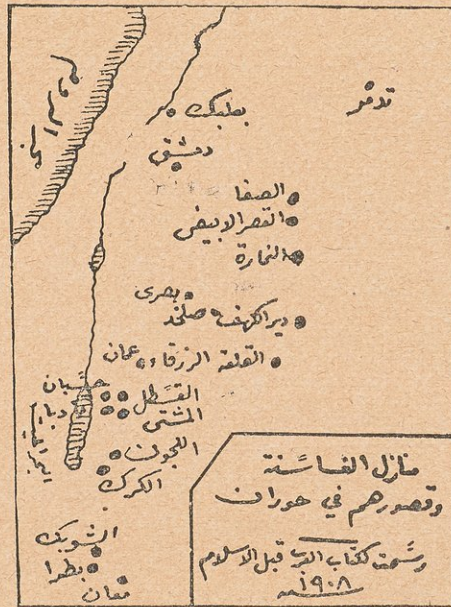 بحر الروم
بعلبك
تدمر
دمشق
الصفا
القصر الابيض
النمارة
بصرى
صلخد
دير الكهف
عمان
القلعه الزرقاء
حسبان
القسطل
دبا
المشتى
البحر الميت
اللجون
الكرك
الشوبك
بطرا
معان
منازل الغساسنة
وقصورهم في حوران
رسمت لكتاب العرب قبل الاسلام
سنة ١٩٠٨